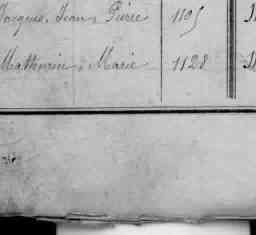 Jacques, Jean, Pierre 1105
Mathurin, Marie 1128